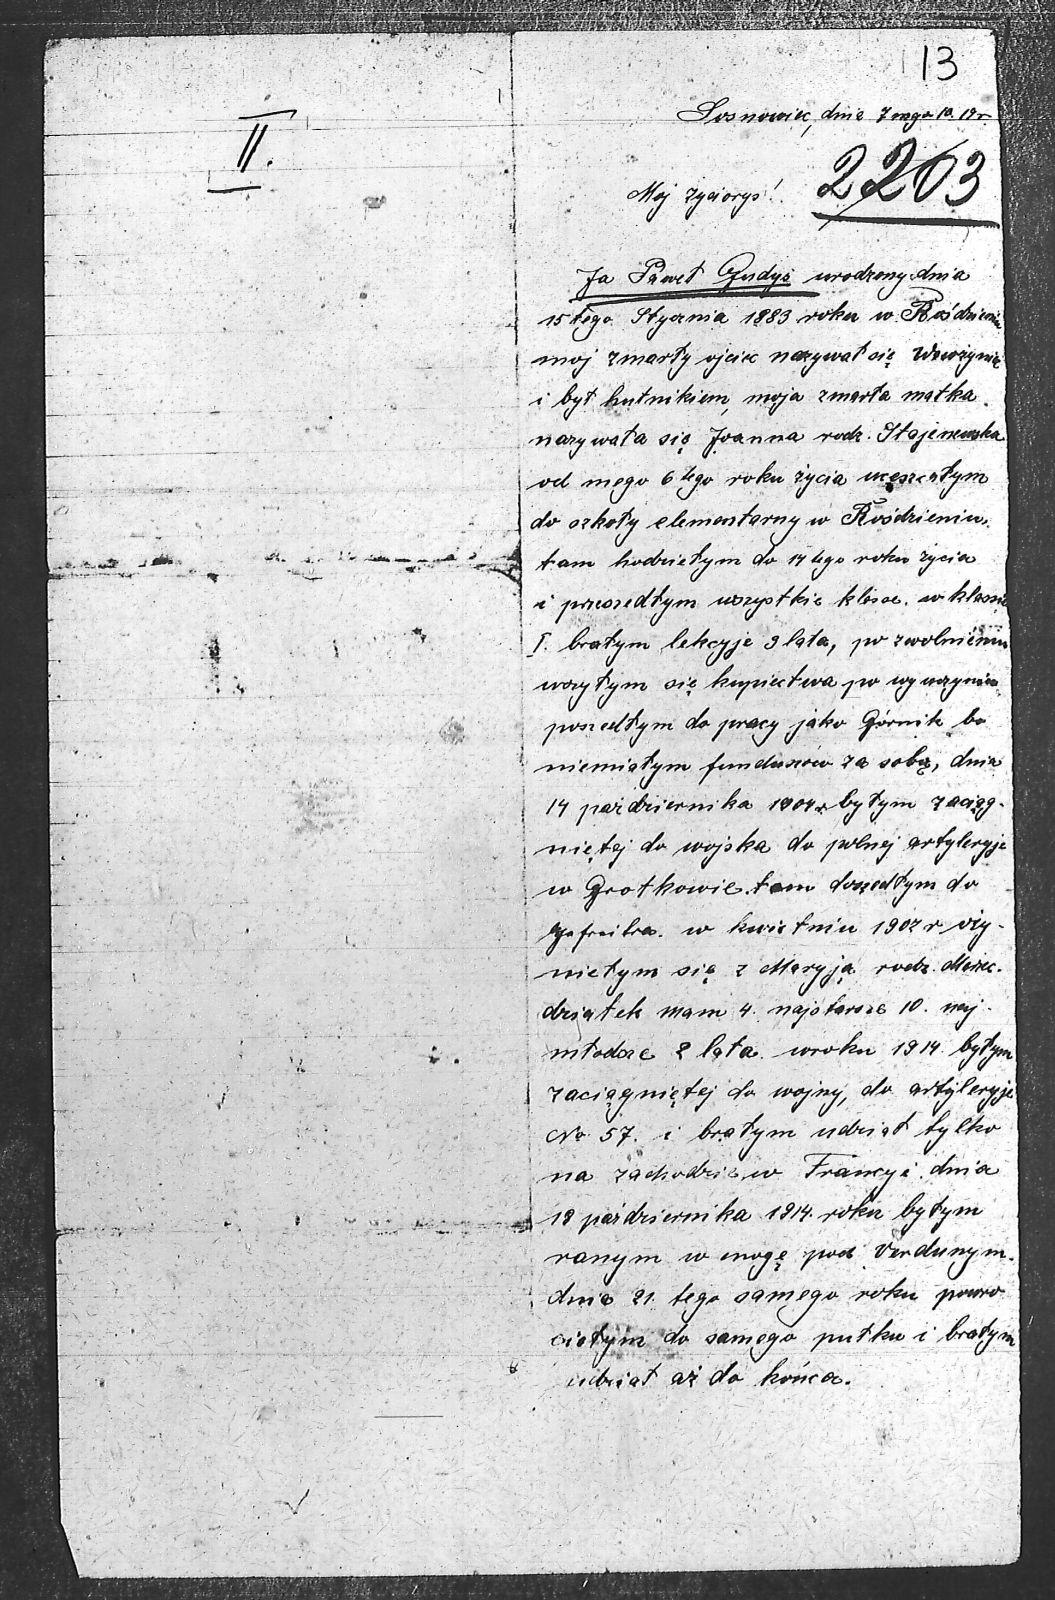 13
II.
Sosnowiec, dnia 7 mego 10. 19 r.
2263
Moj życiorys!
Ja Paweł Gudys urodzony dnia
15 tego Stycznia 1883 roku w Rośdzieniu
moj zmarły ojciec nazywał się Wawrzynie
i był hutnikiem, moja zmarła matka
nazywała się Joanna rodz.
od mego 6 tego roku życia uczęszczałym
do szkoły elementarny w Rośdzieniu.
tam hodziełym do 14 tego roku życia
i przeszedłym wszystkie klase. w klassie
I. brałym lekcyje 3 lata, po zwolnieniu
uczyłym się kupiectwa po wyuczyniu
poszedłym do pracy jako Górnik bo
niemiałym funduszów za sobą, dnia
14 października 1904 r. byłym zaciąg-
niętej do wojska do polnej artyleryje
w Grotkowie. tam doszedłym do
Gefreitra. w kwietniu 1907 r. oży-
niełym się z Maryją rodz.
dziątek mam 4. najstarsze 10. naj-
młodsze 2 lata. wroku 1914 byłym
zaciągniętej do wojny, do artyleryje
No 57. i brałym udział tylko
na zachodzie w Francyi. dnia
19 października 1914. roku byłym
ranym w nogę pod Verdunym.
dnia 21. tego samego roku powro
ciełym do samego pułku i brałym
udział aż do końca.